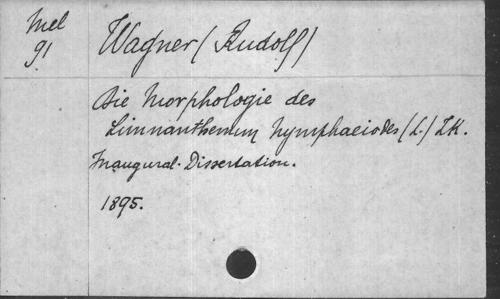 Mel
91
Wagner (Rudolf)
Die Morphologie des
Limnanthemum nymphaeiodes (L.) LK.
Inaugural-Dissertation.
1895.